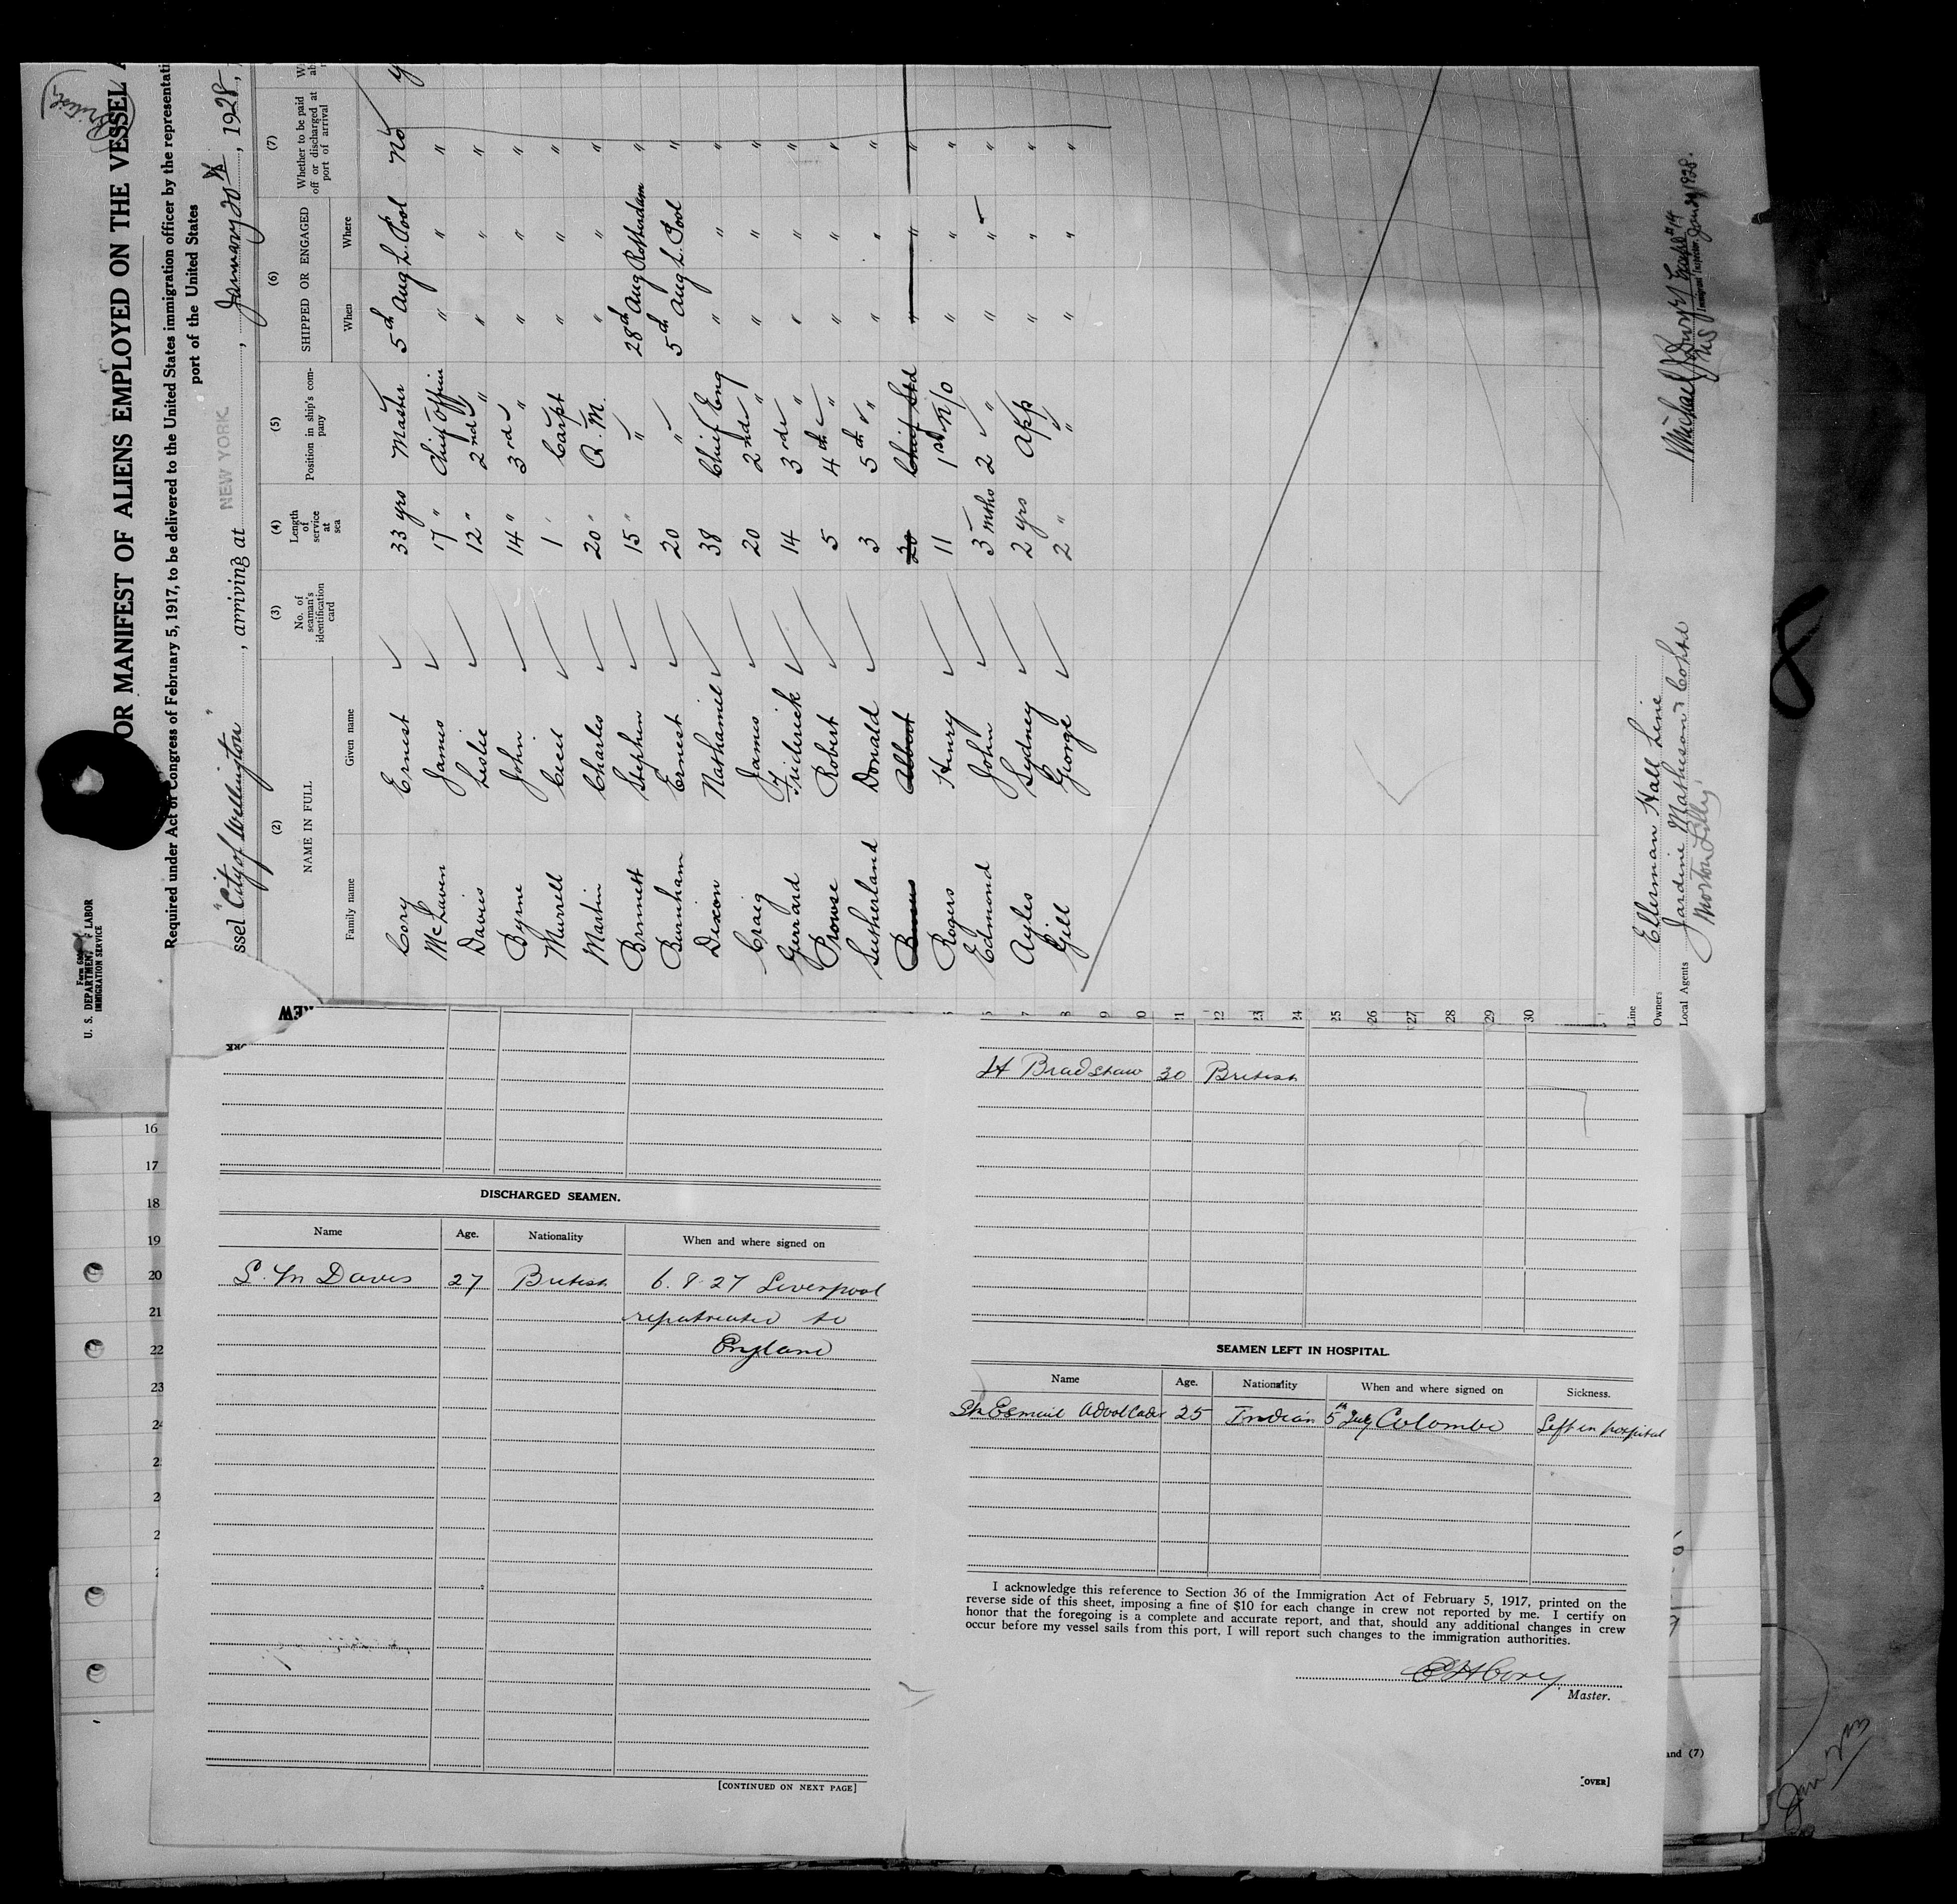 (British)
OR MANIFEST OF ALIENS EMPLOYED ON THE VESSEL A
Required under Act of Congress of February 5, 1917, to be delivered to the United States immigration officer by the representati
port of the United States
Form 680
U. S. DEPARTMENT OF LABOR
IMMIGRATION SERVICE
ssel "City of Wellington", arriving at NEW YORK, January 20th, 1928,
(2) (3) (4) (5) (6) (7)
NAME IN FULL
Family name Given name
No. of seaman's identification card
Length of service at sea
Position in ship's company
SHIPPED OR ENGAGED
When Where
Whether to be paid off or discharged at port of arrival
Cory Ernest 33 yrs Master 5th Aug L.Pool No
McLaven James 17 " Chief Officer " " "
Davies Leslie 12 " 2nd " " " "
Byrne John 14 " 3rd " " " "
Murrell Cecil 1 ' Carpt " " "
Martin Charles 20 " Q. M. " " "
Brinnett Stephen 15 " " 28th Aug Rotterdam "
Burnham Ernest 20 " 5th Aug L. Pool "
Dixon Nathaniel 38 Chief Eng " " "
Craig James 20 2nd " " " "
Gerrard Frederick 14 3rd " " " "
Prowse Robert 5 4th " " " "
Sutherland Donald 3 5th " " " "
Albert 20 Chief Std " " "
Rogers Henry 11 1st W/O " " "
Edmond John 3 mths 2 " " " "
Ayles Sydney 2 yrs App " " "
Gill George 2 " " " " "
21
22
23
24
25
26
27
28
29
30
Line
Owners Ellerman Hall Line
Local Agents Jardine Matheson & Co Ltd
Morton Lilly
Michael J.
Immigrant Inspector.
1928.
H Bradshaw 30 British
16
17
18
19
20
21
22
23
DISCHARGED SEAMEN.
Name Age. Nationality When and where signed on
L. M Davies 27 British 6. 8 27 Liverpool
repatriated to
England
[CONTINUED ON NEXT PAGE]
SEAMEN LEFT IN HOSPITAL.
Name Age. Nationality When and where signed on Sickness.
Sk Esmail Advol Cader 25 Indian 5th July Colombo Left in hospital
I acknowledge this reference to Section 36 of the Immigration Act of February 5, 1917, printed on the
reverse side of this sheet, imposing a fine of $10 for each change in crew not reported by me. I certify on
honor that the foregoing is a complete and accurate report, and that, should any additional changes in crew
occur before my vessel sails from this port, I will report such changes to the immigration authorities.
E H Cory
Master.
[OVER]
and (7)
8